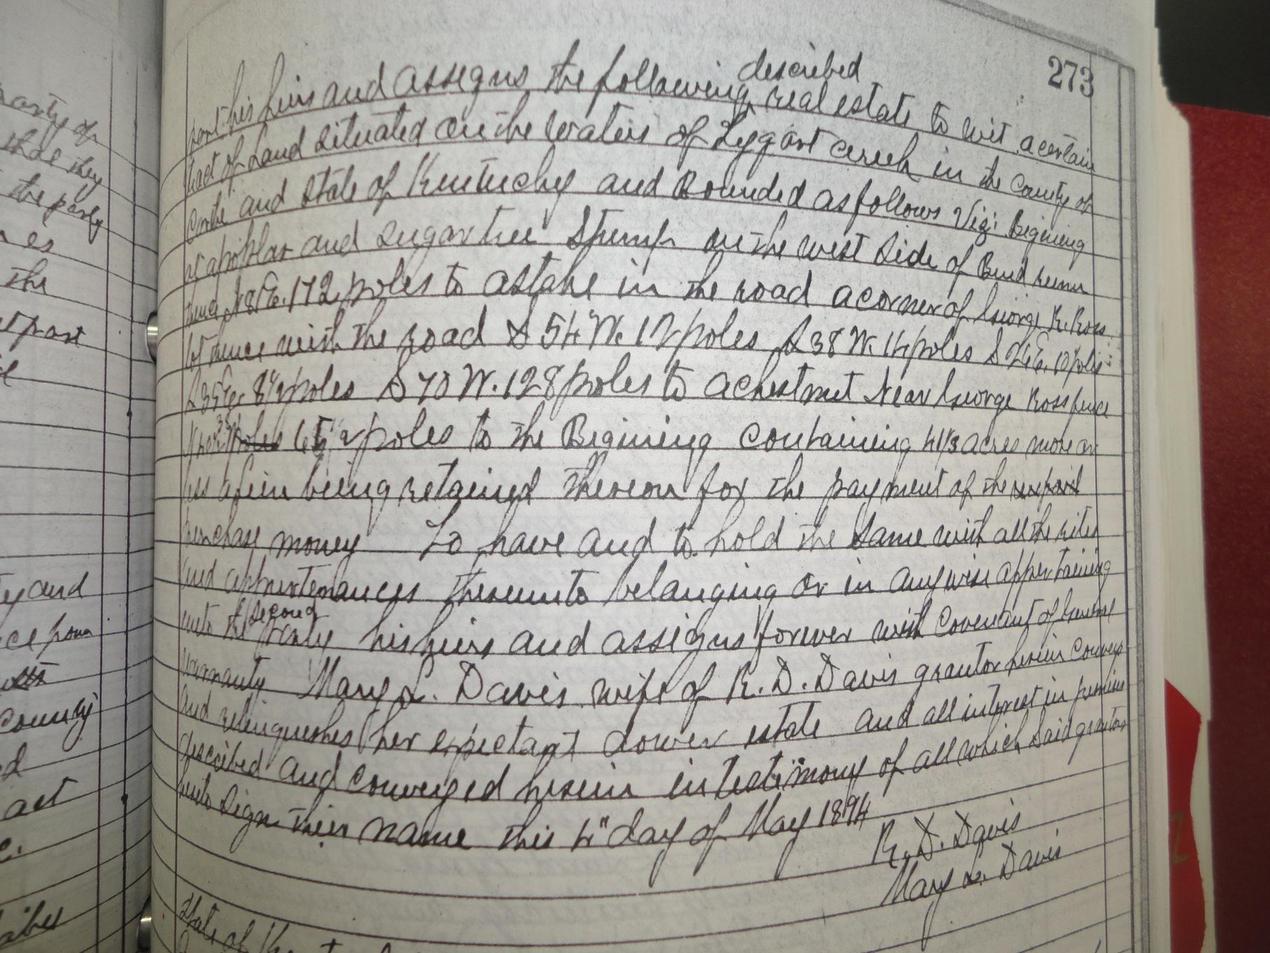 273
described
part his heirs and assigns the following real estate to wit a certain
tract of Land situated on the waters of Tygart creek in the County of
and State of Kentucky and Bounded as follows Viz: Begining
at a poplar and Sugartree Stump on the west Side of Buck
thence 172 poles to a stake in the road a corner of George R. Ross
thence with the road S 54 W. 12 poles S 38 W. 14 poles S 26 E. 10 poles
S 35 E. poles S 70 W. 128 poles to a chestnut Near George Ross fence
poles to the Begining containing acres more or
less a lien being retained thereon for the payment of the
purchase money To have and to hold the Same with all the
and appurtenances thereunto belanging or in anywise appertaining
second
unto the party his heirs and assigns forever with Covenant of General
Warranty Mary L. Davis wife of R. D. Davis grantor herein conveys
and relinquishes her expectant dower estate and all interest in
described and conveyed herein in testimony of all which Said grantors
Sign their name this 4" day of May 1894
R. D. Davis
Mary L. Davis
State of
party of
that they
the party
the
part
ty and
County
act